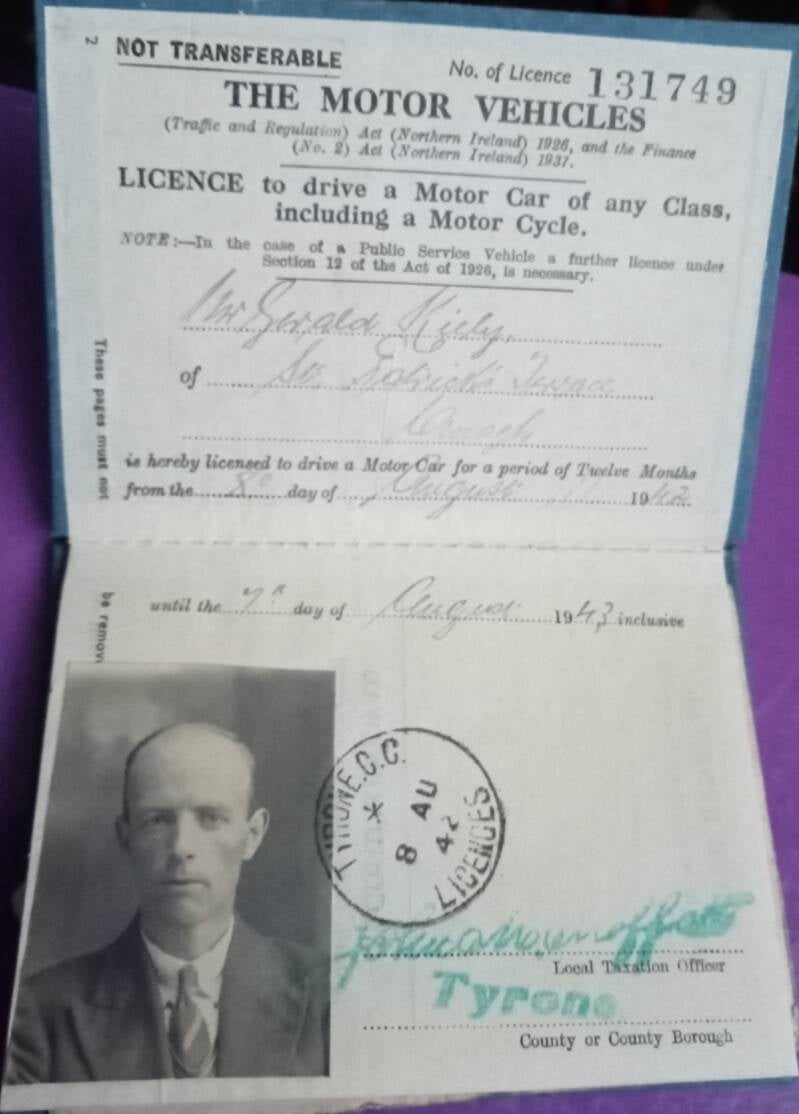 2
NOT TRANSFERABLE
No. of Licence 131749
THE MOTOR VEHICLES
(Traffic and Regulation) Act (Northern Ireland) 1926, and the Finance
(No. 2) Act (Northern Ireland) 1937.
LICENCE to drive a Motor Car of any Class,
including a Motor Cycle.
NOTE:—In the case of a Public Service Vehicle a further licence under
Section 12 of the Act of 1926, is necessary.
Mr Gerald Kiely,
of St. Patrick's Terrace
Omagh
is hereby licensed to drive a Motor Car for a period of Twelve Months
from the 8th day of August 1942
These pages must not
be remov
until the 7th day of August 1943 inclusive
TYRONE.C.C.
8 AU
42
LICENCES
Local Taxation Officer
Tyrone
County or County Borough